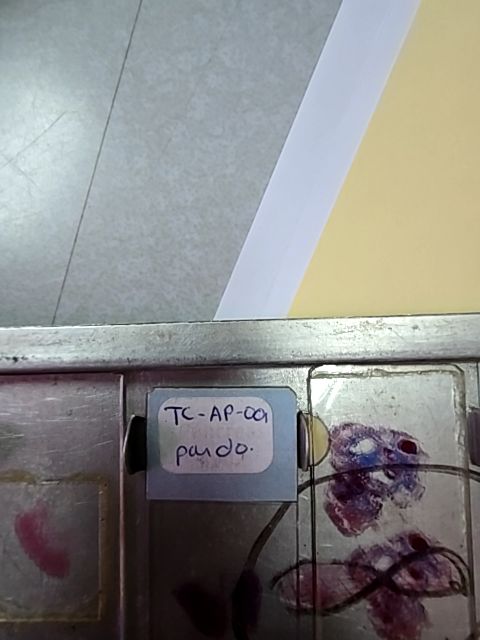 TC-AP-09
pardo.